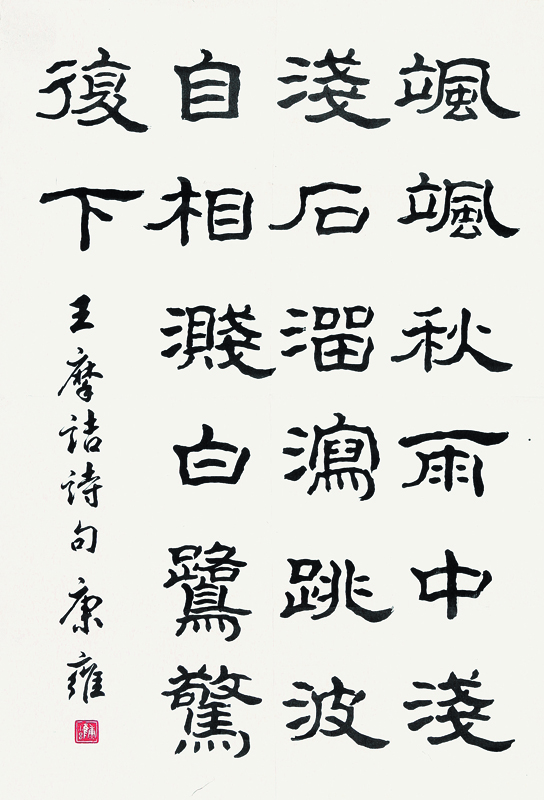 颯颯秋雨中淺
淺石溜瀉跳波
自相濺白鷺驚
復下
王摩詰詩句康雍